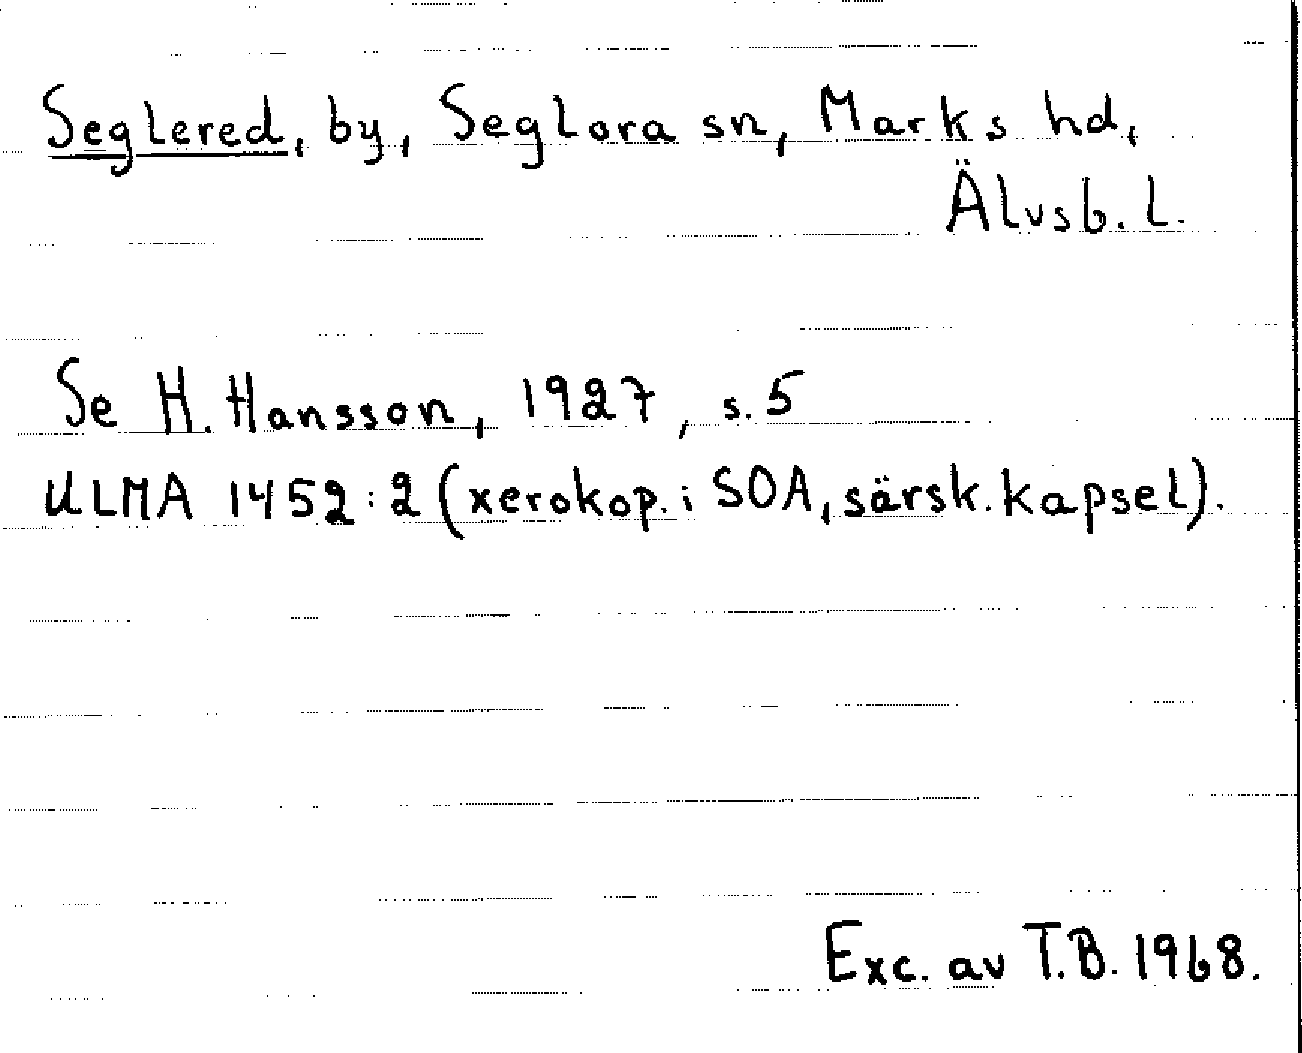 Seglered, by, Seglora sn, Marks hd,
Älvsb. l.
Se H. Hansson, 1927, s. 5
ULMA 1452:2 (xerokop. i SOA, särsk. kapsel).
Exc. av T.B. 1968.